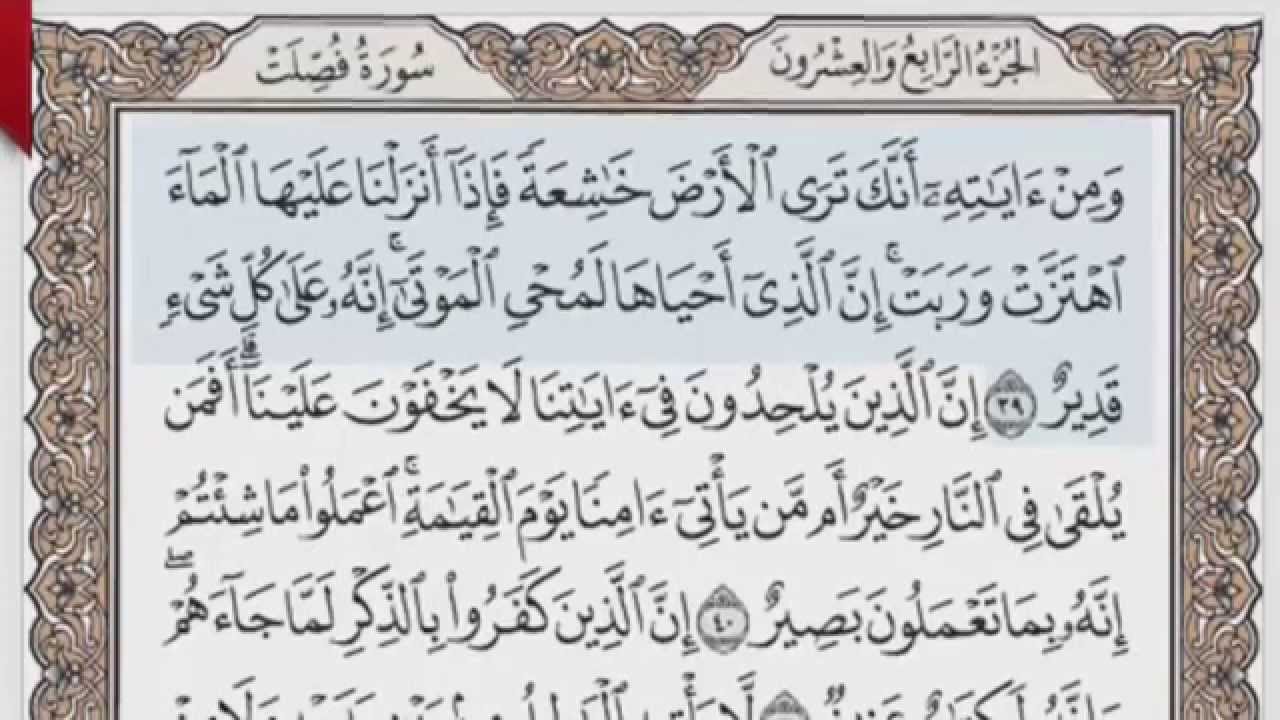 الجزء الرابع والعشرون
سورة فصلت
وَمِنْ ءَايَٰتِهِۦٓ أَنَّكَ تَرَى ٱلْأَرْضَ خَٰشِعَةً فَإِذَآ أَنزَلْنَا عَلَيْهَا ٱلْمَآءَ
ٱهْتَزَّتْ وَرَبَتْ ۚ إِنَّ ٱلَّذِىٓ أَحْيَاهَا لَمُحْىِ ٱلْمَوْتَىٰٓ ۚ إِنَّهُۥ عَلَىٰ كُلِّ شَىْءٍ
قَدِيرٌ ٣٩ إِنَّ ٱلَّذِينَ يُلْحِدُونَ فِىٓ ءَايَٰتِنَا لَا يَخْفَوْنَ عَلَيْنَآ ۗ أَفَمَن
يُلْقَىٰ فِى ٱلنَّارِ خَيْرٌ أَم مَّن يَأْتِىٓ ءَامِنًا يَوْمَ ٱلْقِيَٰمَةِ ۚ ٱعْمَلُوا۟ مَا شِئْتُمْ
إِنَّهُۥ بِمَا تَعْمَلُونَ بَصِيرٌ ٤٠ إِنَّ ٱلَّذِينَ كَفَرُوا۟ بِٱلذِّكْرِ لَمَّا جَآءَهُمْ ۖ